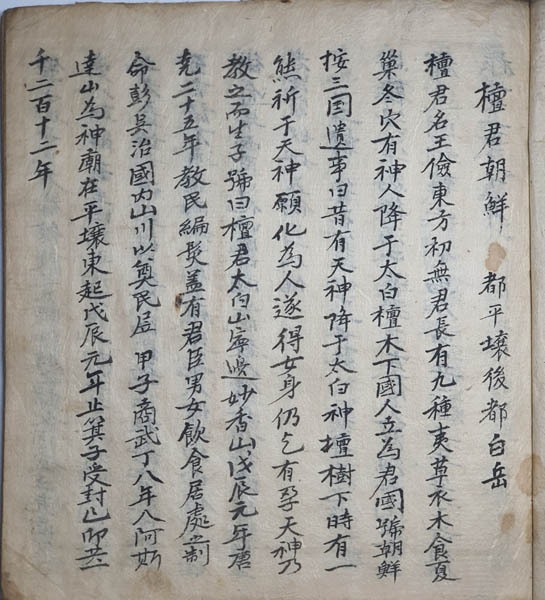 檀君朝鮮 都平壤後都白岳
檀君名王儉東方初無君長有九種夷草衣木食夏
巢冬穴有神人降于太白檀木下國人立為君國號朝鮮
按三国遺事曰昔有天神降于太白神檀樹下時有一
熊祈于天神願化為人遂得女身仍乞有孕天神乃
教之而生子號曰檀君太白山寧邊妙香山戊辰元年唐
堯二十五年教民編髮盖有君臣男女飲食居處之制
命彭吳治國內山川以奠民居 甲子商武丁八年入阿斯
達山為神廟在平壤東起戊辰元年止箕子受封己卯共
千二百十二年